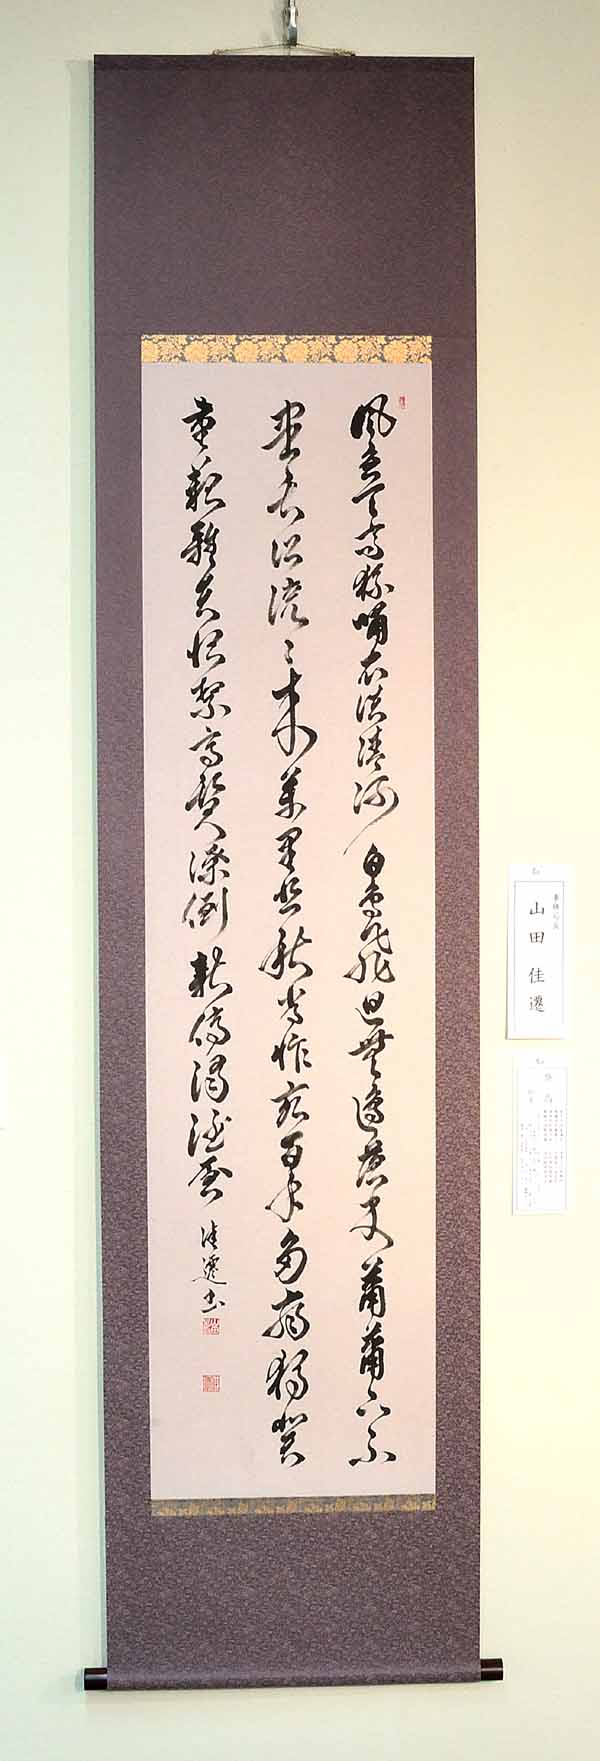 風急天高猿嘯哀渚清沙白鳥飛廻無邊落木蕭蕭下不
盡長江滾々来萬里悲秋常作客百年多病獨登
臺艱難苦恨繁霜鬢潦倒新停濁酒杯 佳遷書
山田佳遷
登高